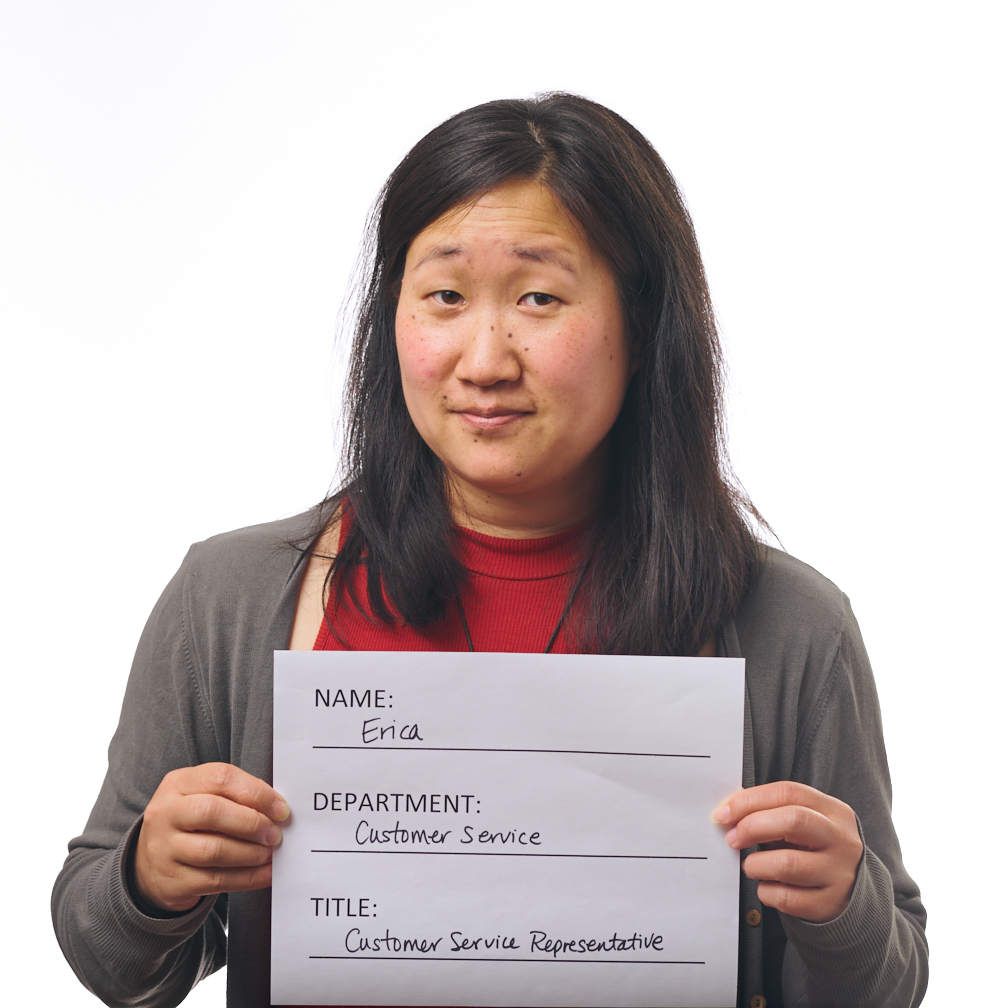 NAME:
Erica
DEPARTMENT:
Customer Service
TITLE:
Customer Service Representative